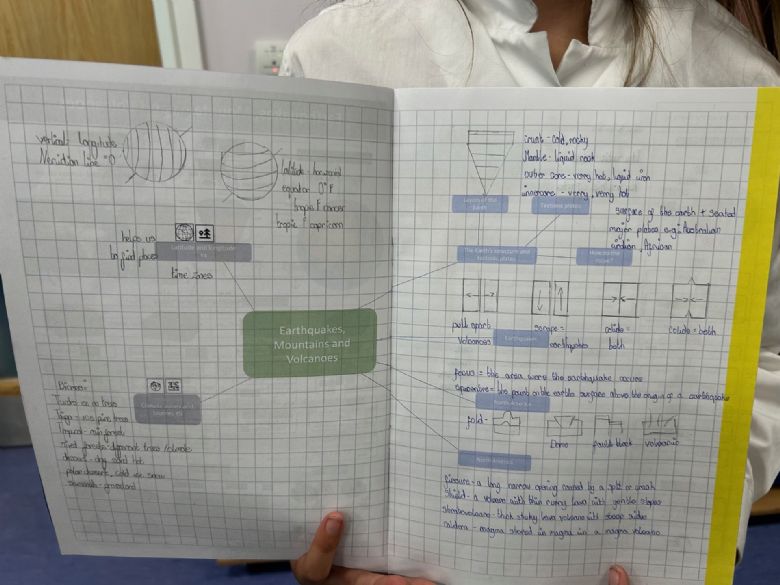 vertical longitude
Meridian line °0
latitude - horizontal
equator 0°F
tropic F cancer
tropic ° capricorn
helps us
to find places
Latitude and longitude
time zones
Earthquakes,
Mountains and
Volcanoes
Biomes:
Climate zones and
biomes
Tundra - no trees
Taiga - pine trees
Tropical - rainforest
mixed forests - different trees
desert - dry sand hot
savannah - grassland
crust - cold, rocky
Mantle - liquid rock
outer core - verry hot, liquid iron
innercore - verry, verry hot
Layers of the
Earth
Tectonic plates
surface of the earth +
major plates e.g: Australian
indian, African
The Earth's structure and
tectonic plates
How do they
move?
pulls apart
volcanoes
scrape =
earthquakes
colide =
both
colide = both
Earthquakes
focus = the area were the earthquake occurs
epicentre = the point on the earths surface above the origin of a earthquake
North America
fold -
Dome
fault block
volcanic
North America
fissure - a long narrow opening coused by a split or crack
Shield - a volcano with thin runny lava with gentle slopes
Stratovolcano - thick sticky lava volcano with steep sides
caldera - magma stored in magma in a magma volcano